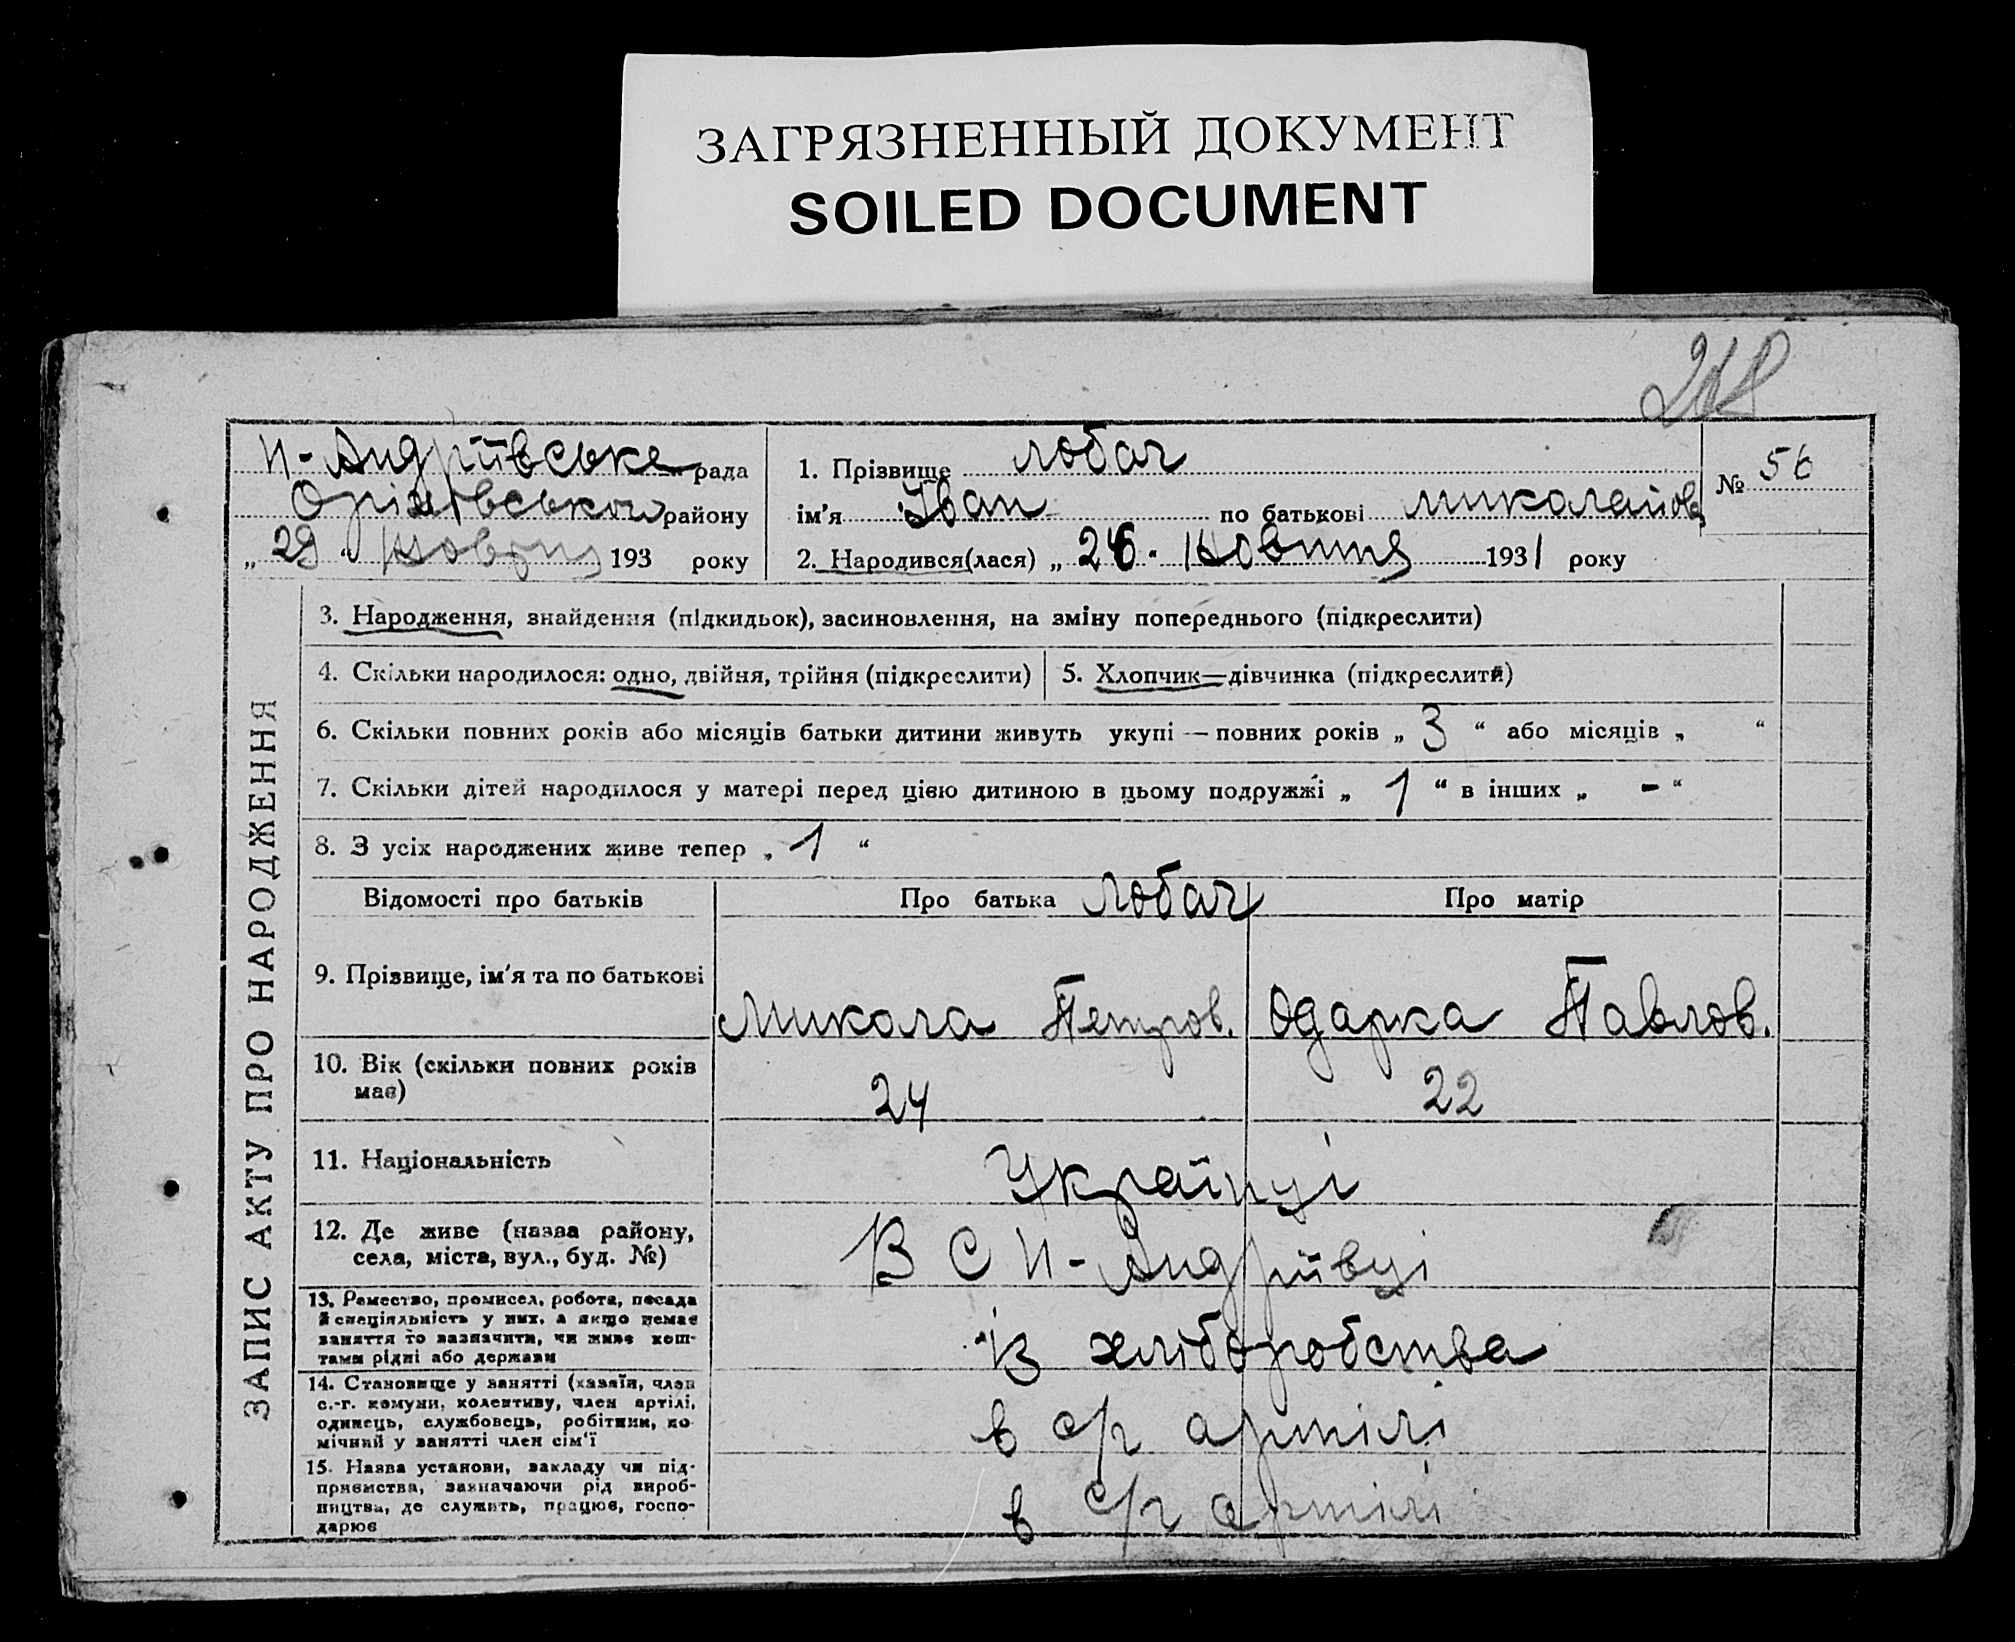 ЗАГРЯЗНЕННЫЙ ДОКУМЕНТ
SOILED DOCUMENT
268
Н-Андріївське рада
Оріхівського району
„ 29 “ Жовтня 193 року
1. Прізвище Лобач
ім'я Іван по батькові Миколайов
2. Народився(лася) „ 26 “ Жовтня 1931 року
№ 56
ЗАПИС АКТУ ПРО НАРОДЖЕННЯ
3. Народження, знайдення (підкидьок), засиновлення, на зміну попереднього (підкреслити)
4. Скільки народилося: одно, двійня, трійня (підкреслити)
5. Хлопчик—дівчинка (підкреслити)
6. Скільки повних років або місяців батьки дитини живуть укупі — повних років „ 3 “ або місяців „ “
7. Скільки дітей народилося у матері перед цією дитиною в цьому подружжі „ 1 “ в інших „ - “
8. З усіх народжених живе тепер „ 1 “
Відомості про батьків
Про батька Лобач
Про матір
9. Прізвище, ім'я та по батькові
Микола Петров.
Одарка Павлов.
10. Вік (скільки повних років
має)
24
22
11. Національність
Українці
12. Де живе (назва району,
села, міста, вул., буд. №)
В С Н-Андріївці
13. Ремество, промисел, робота, посада
й спеціяльність у них, а якщо немає
заняття то зазначити, чи живе кош-
тами рідні або держави
Із хліборобства
14. Становище у занятті (хазяїн, член
с.-г. комуни, колективу, член артілі,
одинець, службовець, робітник, по-
мічний у занятті член сім'ї
в с/г артілі
15. Назва установи, закладу чи під-
приємства, зазначаючи рід вироб-
ництва, де служить, працює, госпо-
дарює
в с/г артілі